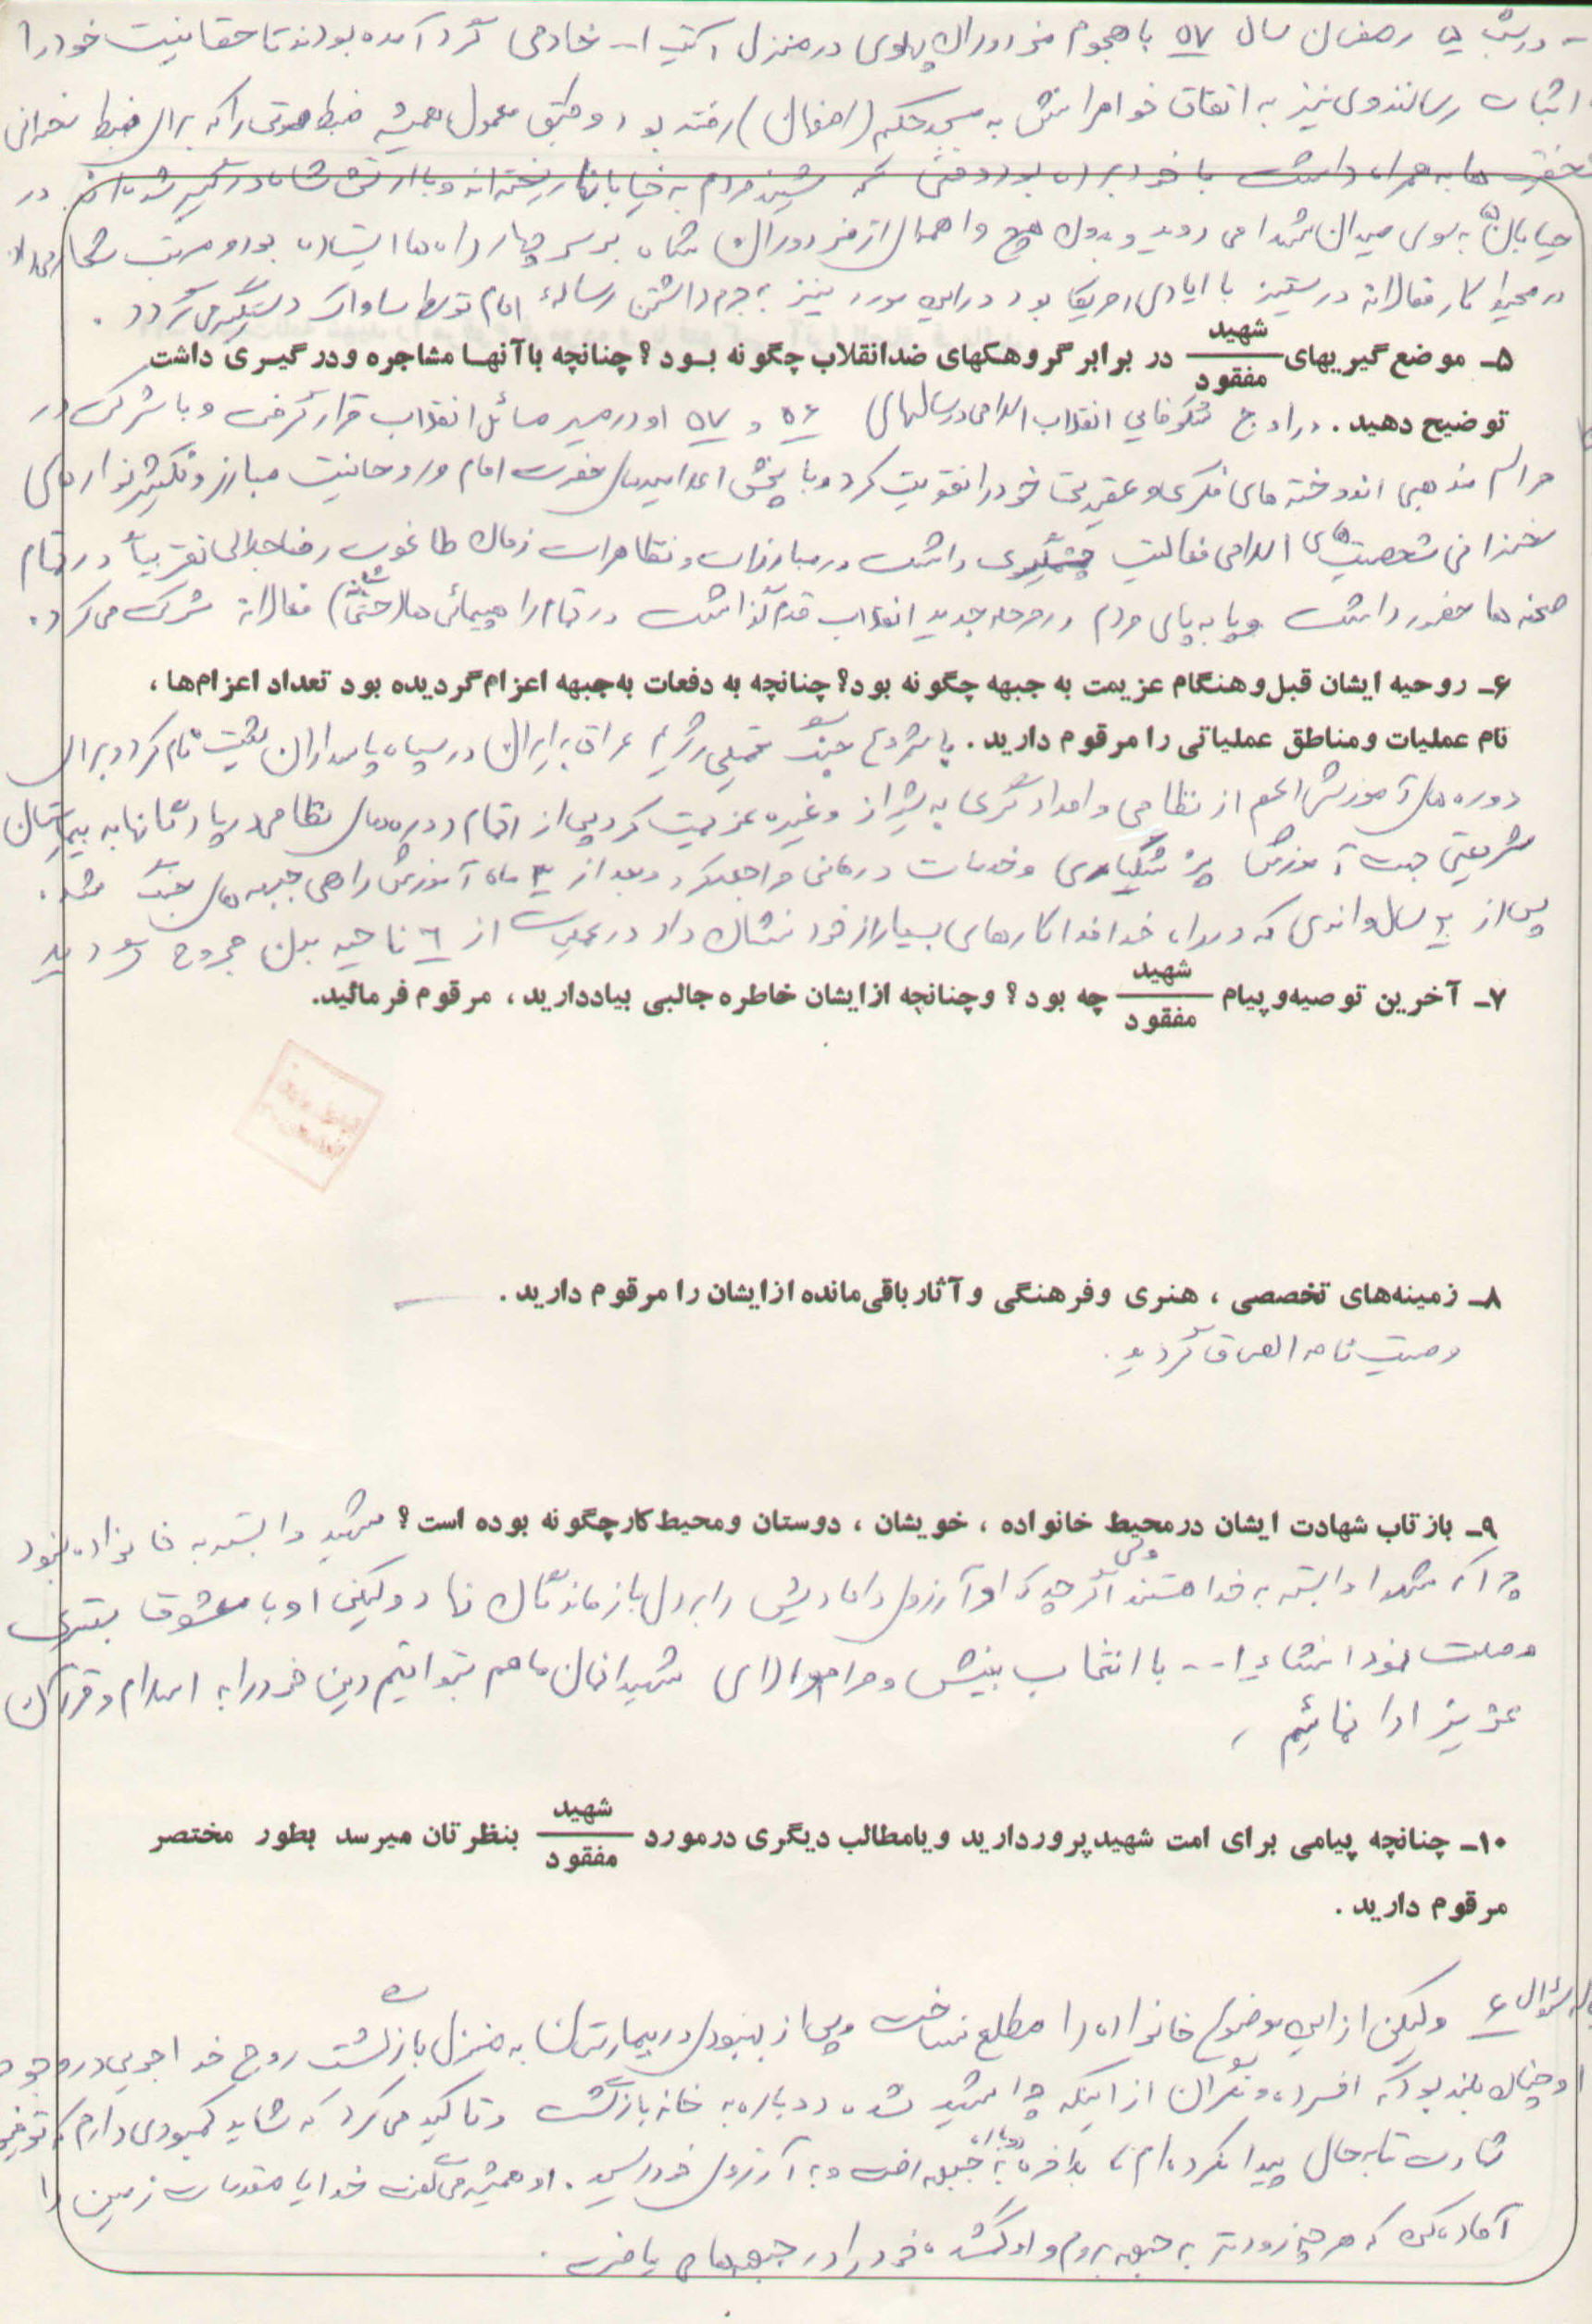 - در شب ۵ رمضان سال ۵۷ با هجوم مزدوران پهلوی در منزل آیت ا... خادمی گرد آمده بودند تا حقانیت خود را
اثبات رسانند وی نیز به اتفاق خواهرانش به مسجد حکیم (اصفهان) رفته بود و طبق معمول همیشه ضبط صوتی را که برای ضبط سخرانی
ها به همراه داشت با خود برده بود وقتی که شنید مردم به خیابانها ریخته اند و با ارتش شاه درگیر شده اند در
خیابان به سوی میدان شهدا می رود و بدون هیچ واهمه ای از مزدوران شاه بر سر چهار راه ها ایستاده بود و مرتب شعار می داد
در محیط کار فعالانه در ستیز با ایادی امریکا بود در این مورد نیز به جرم داشتن رساله امام توسط ساواک دستگیر می گردد .
۵ـ موضع گیریهای شهید / مفقود در برابر گروهکهای ضدانقلاب چگونه بـود ؟ چنانچه باآنهـا مشاجره و درگیـری داشت
توضیح دهید . در اوج شکوفایی انقلاب اسلامی در سالهای ۵۶ و ۵۷ او در مسیر مسائل انقلاب قرار گرفت و با شرکت در
مراسم مذهبی اندوخته های فکری و عقیدتی خود را تقویت کرد و با پخش اعلامیه های حضرت امام و روحانیت مبارز و تکثیر نوارهای
سخنرانی شخصیت های اسلامی فعالیت چشمگیری داشت در مبارزات و تظاهرات زمان طاغوت رضا جلالی تقریباً در تمام
صحنه ها حضور داشت و پا به پای مردم در مرحله جدید انقلاب قدم گذاشت در تمام راهپیمائی ها (حتی شبانه) فعالانه شرکت می کرد .
۶ـ روحیه ایشان قبل و هنگام عزیمت به جبهه چگونه بود؟ چنانچه به دفعات به جبهه اعزام گردیده بود تعداد اعزام‌ها ،
نام عملیات و مناطق عملیاتی را مرقوم دارید . با شروع جنگ تحمیلی رژیم عراق به ایران در سپاه پاسداران ثبت نام کرد و برای
دوره های آموزش اعم از نظامی و امدادگری به شیراز و غیره عزیمت کرد پس از اتمام دوره های نظامی در پادگانها به بیمارستان
شریعتی جهت آموزش پزشکیاری و خدمات درمانی مراجعه کرد و بعد از ۳ ماه آموزش راهی جبهه های جنگ شد .
پس از ۲ سال و اندی که در راه خدا فداکارهای بسیار از خود نشان داد در عملیات از ۶ ناحیه بدن مجروح گردید
۷ـ آخرین توصیه و پیام شهید / مفقود چه بود ؟ و چنانچه ازایشان خاطره جالبی بیاددارید ، مرقوم فرمائید.
۸ـ زمینه‌های تخصصی ، هنری و فرهنگی و آثار باقی‌مانده ازایشان را مرقوم دارید .
وصیت نامه الصاق گردید .
۹ـ بازتاب شهادت ایشان درمحیط خانواده ، خویشان ، دوستان و محیط کار چگونه بوده است ؟ شهید وابسته به خانواده نبود
چرا که شهدا وابسته به خدا هستند ولی اگر چه که او آرزوی دامادیش را بر دل بازماندگان نهاد ولیکن او با معشوق بهتری
وصلت نمود انشاء ا... با انتخاب بینش و مرام شهیدانمان ما هم بتوانیم دین خود را به اسلام و قرآن
عزیز ادا نمائیم .
۱۰ـ چنانچه پیامی برای امت شهیدپرور دارید و یامطالب دیگری درمورد شهید / مفقود بنظرتان میرسد بطور مختصر
مرقوم دارید .
سئوال ۶ ولیکن از این موضوع خانواده را مطلع نساخت و پس از بهبودی در بیمارستان به منزل بازگشت روح خداجویی در وجود
او چنان بلند بود که افسرده و نگران از اینکه چرا شهید نشده دوباره به خانه بازگشت و تاکید می کرد که شاید کمبودی دارم که توفیق
شهادت تا به حال پیدا نکرده ام تا بالاخره دوباره به جبهه رفت و به آرزوی خود رسید . او همیشه می گفت خدایا مقدمات زمین را
آماده کن که هر چه زودتر به جبهه بروم و او گمشده خود را در جبهه ها می یافت .